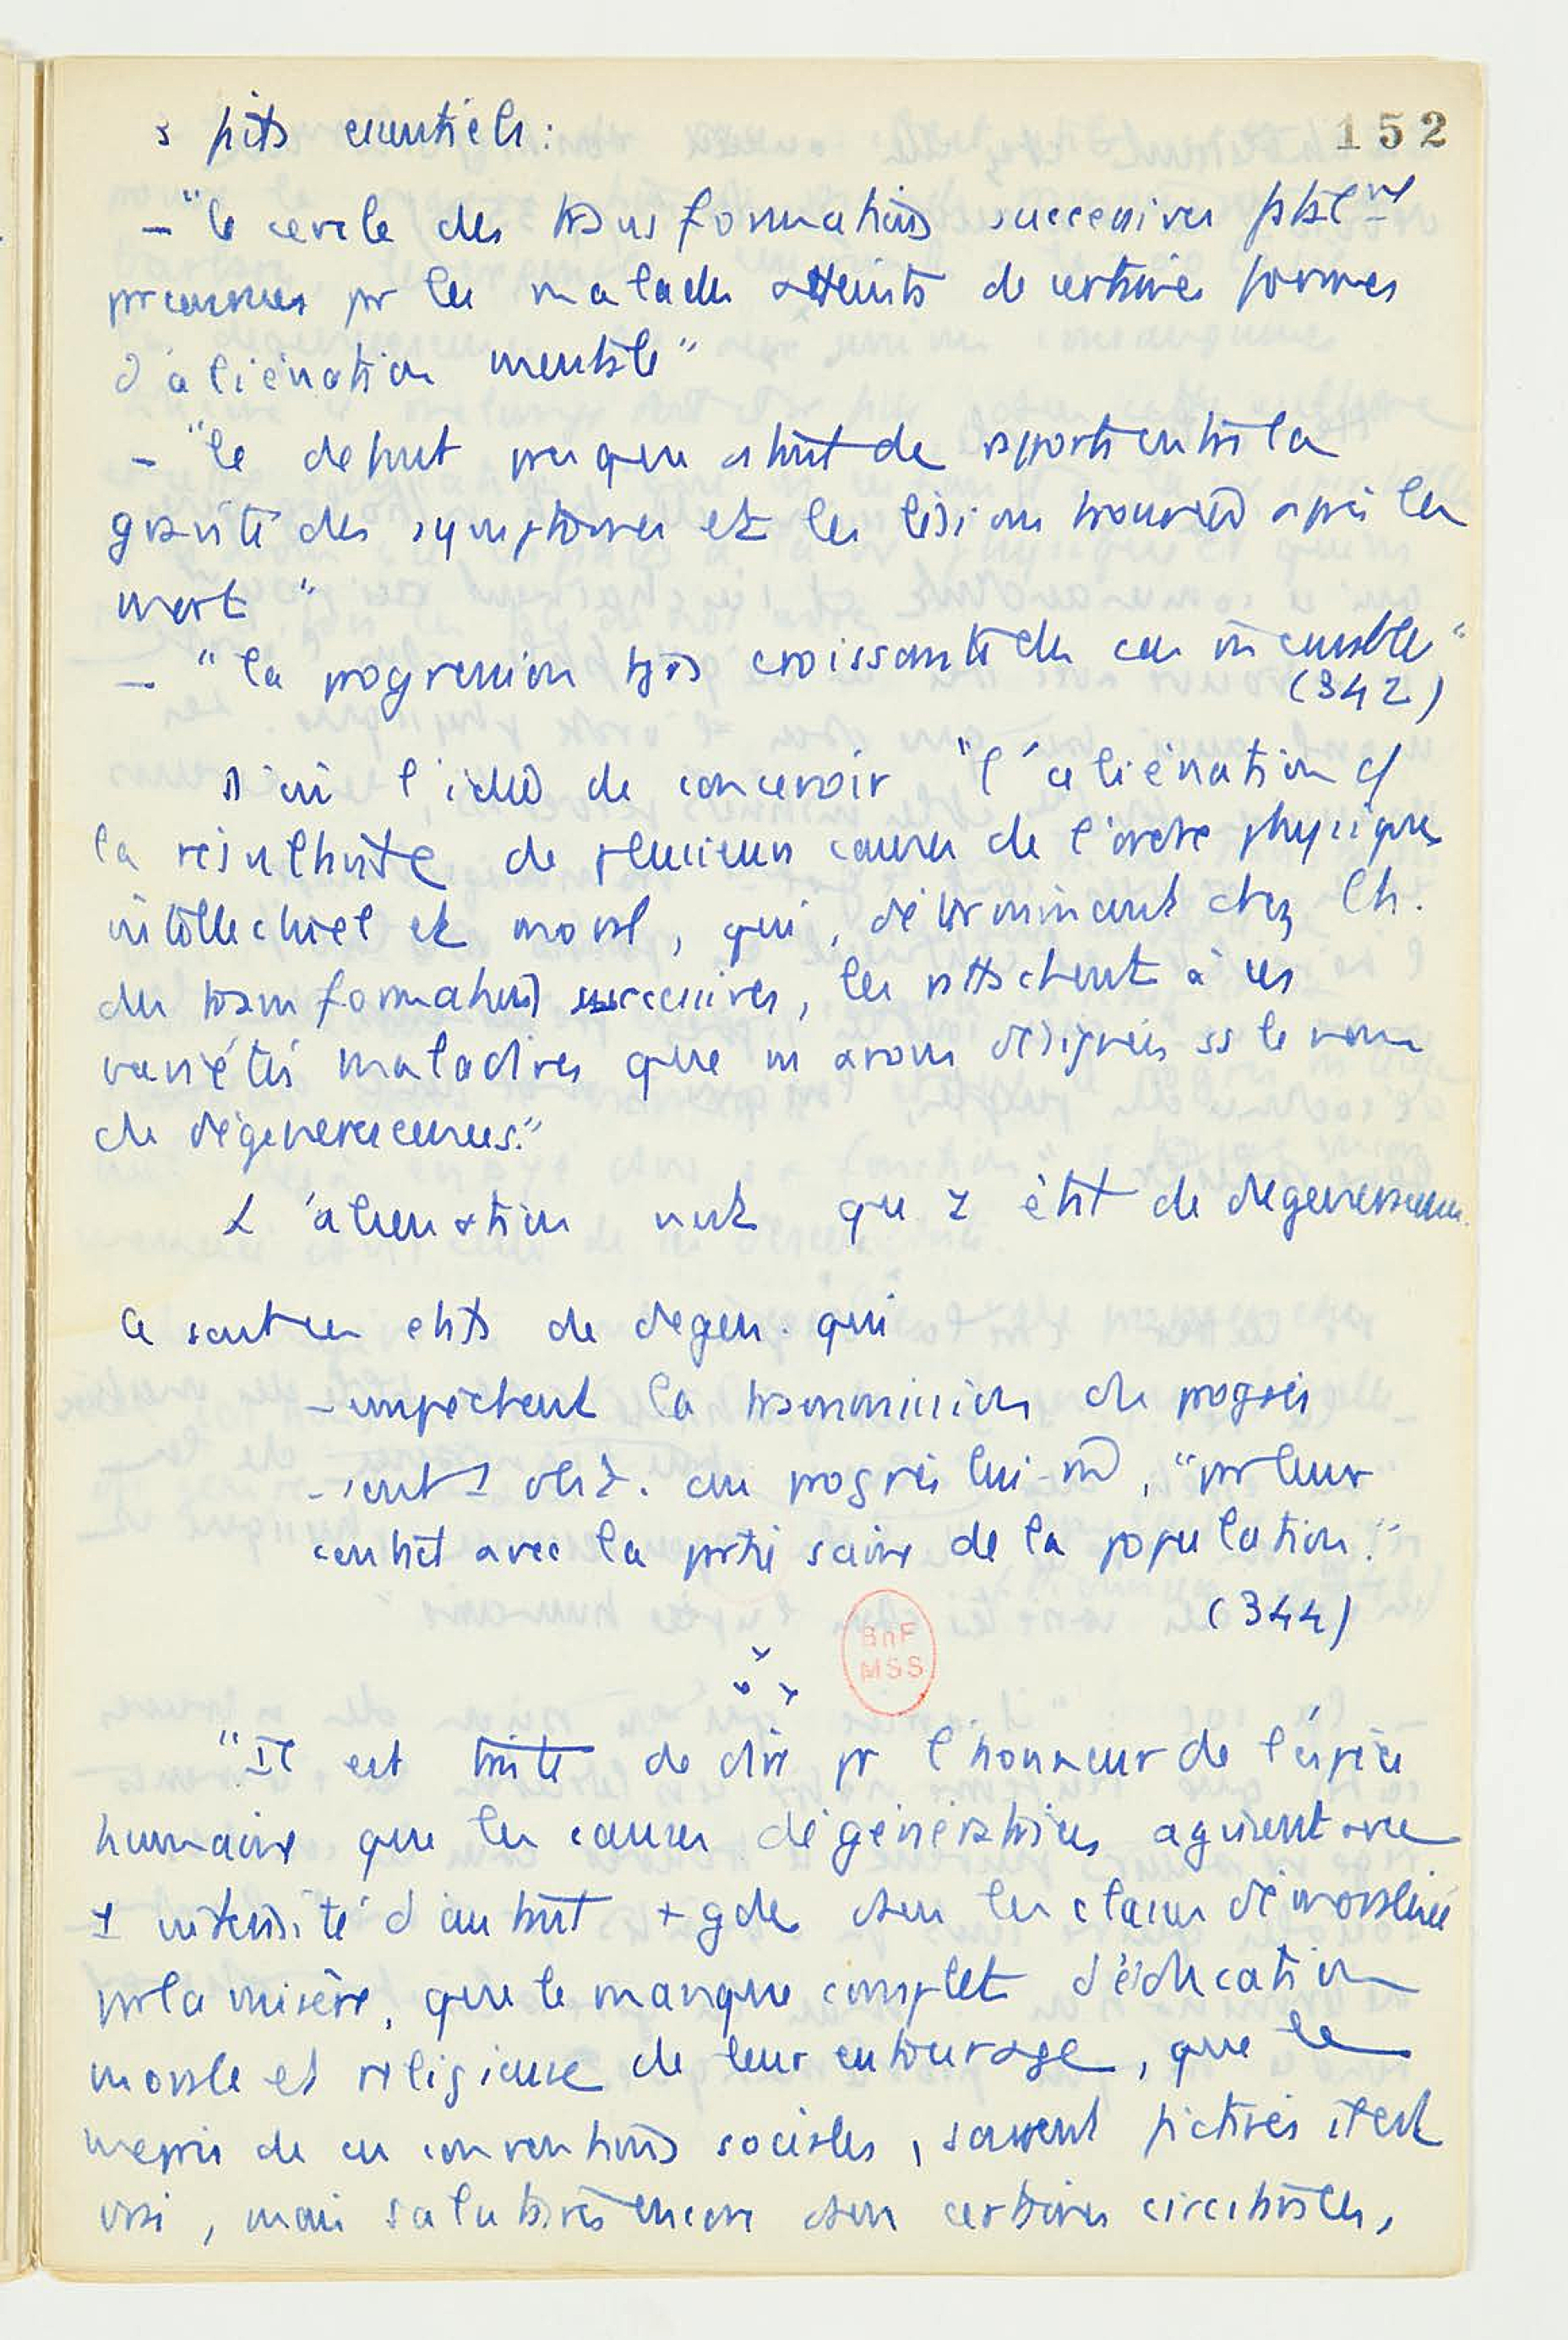 152
3 pts essentiels:
– "le cercle des transformations successives fatalt
parcourues pr les malades atteints de certaines formes
d'aliénation mentale"
– "le défaut presque absolut de rapport entre la
gravité des symptômes et les lésions trouvées après la
mort"
– "la progression tjrs croissante des cas incurables"
(342)
D'où l'idée de concevoir "l'aliénation c/
la résultante de plusieurs causes de l'ordre physique
intellectuel et moral, qui, déterminant chez l'h.
des transformations successives, les rattachent à ces
variétés maladives que ns avons désignées ss le nom
de dégénérescences."
L'aliénation n'est qu'1 état de dégénérescence.
Ce sont les états de dégén. qui
– empêchent la transmission du progrès
– sont 1 obst. au progrès lui-m̂, "pr leur
contact avec la partie saine de la population."
(344)
BnF
MSS
"Il est triste de dire pr l'honneur de l'espèce
humaine que les causes dégénératrices agissent avec
1 intensité d'autant + gde dans les classes démoralisées
par la misère, que le manque complet d'éducation
morale et religieuse de leur entourage, que le
mépris de ces conventions sociales, souvent factices il est
vrai, mais salutaires encore dans certaines circonstances,